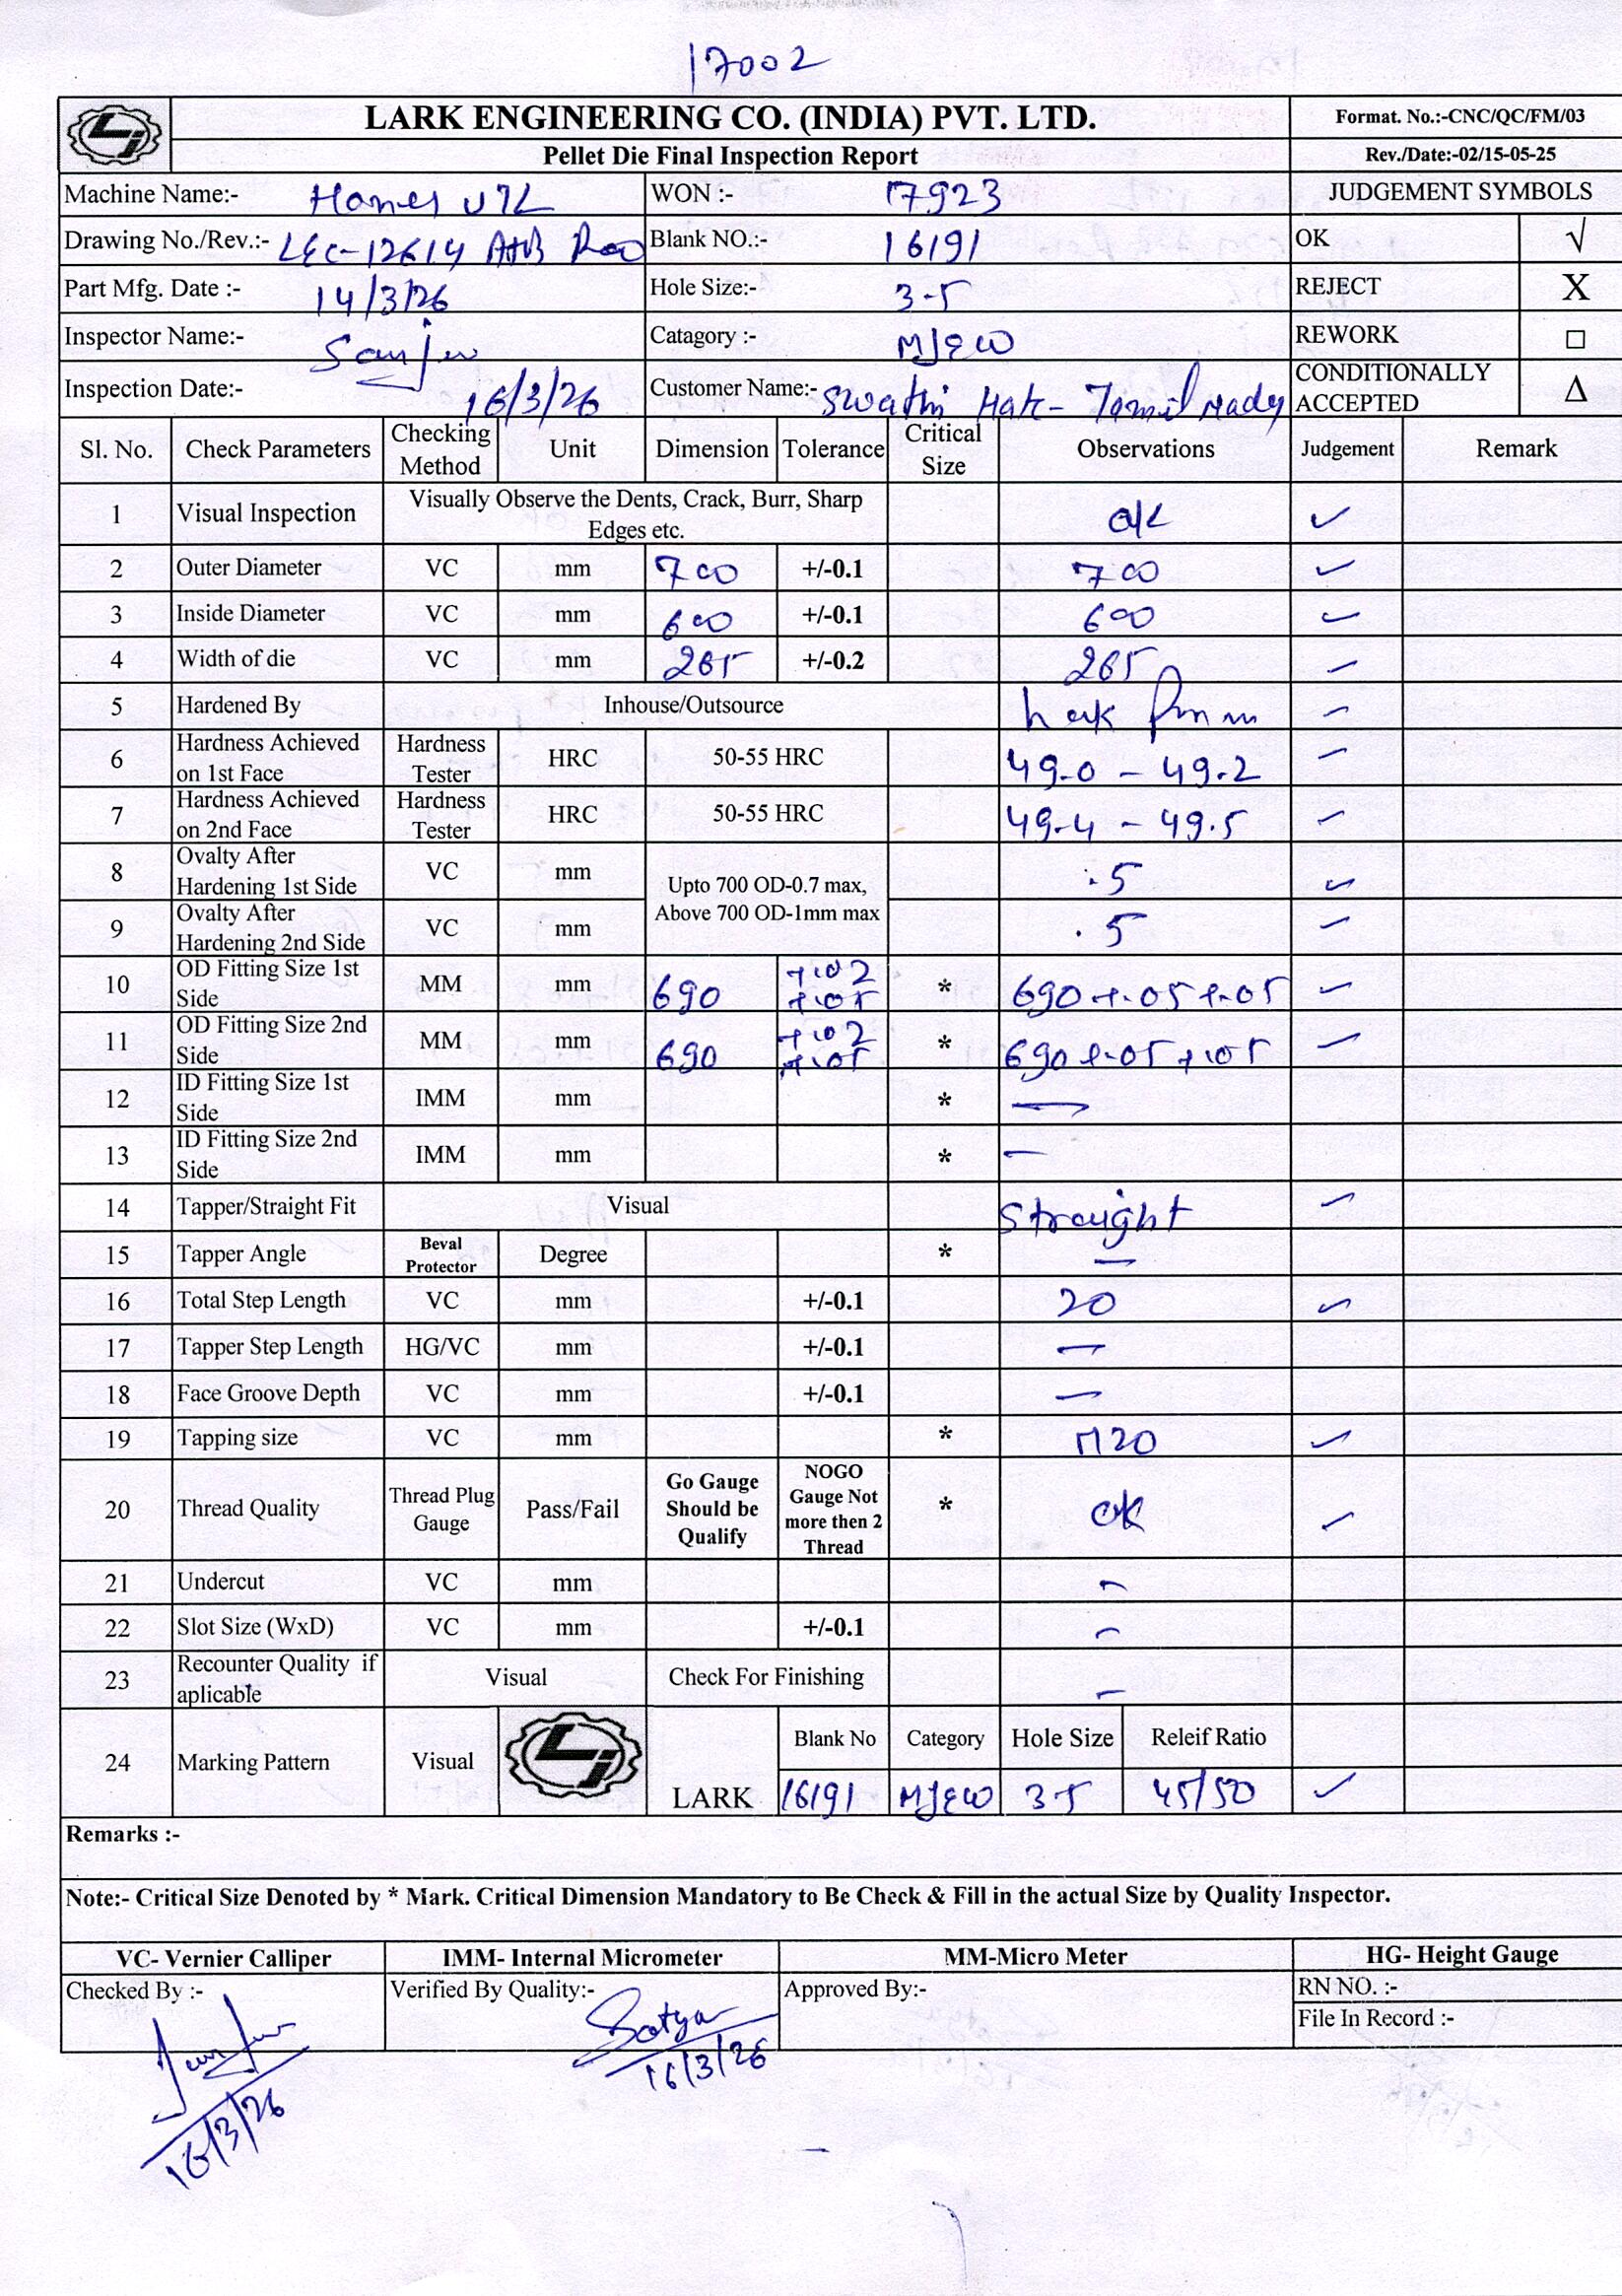 17002
LARK ENGINEERING CO. (INDIA) PVT. LTD.
Format. No.:-CNC/QC/FM/03
Pellet Die Final Inspection Report
Rev./Date:-02/15-05-25
Machine Name:-
WON :- 17923
JUDGEMENT SYMBOLS
Drawing No./Rev.:- LEC-12614
Blank NO.:- 16191
OK √
Part Mfg. Date :- 14/3/26
Hole Size:- 3-5
REJECT X
Inspector Name:- Sanju
Catagory :- MJEW
REWORK □
Inspection Date:- 16/3/26
Customer Name:- Swathi Hatc- Tamil nadu
CONDITIONALLY ACCEPTED Δ
Sl. No. Check Parameters Checking Method Unit Dimension Tolerance Critical Size Observations Judgement Remark
1 Visual Inspection Visually Observe the Dents, Crack, Burr, Sharp Edges etc. O/K ✓
2 Outer Diameter VC mm 700 +/-0.1 700 ✓
3 Inside Diameter VC mm 600 +/-0.1 600 ✓
4 Width of die VC mm 265 +/-0.2 265 ✓
5 Hardened By Inhouse/Outsource ✓
6 Hardness Achieved on 1st Face Hardness Tester HRC 50-55 HRC 49.0 - 49.2 ✓
7 Hardness Achieved on 2nd Face Hardness Tester HRC 50-55 HRC 49.4 - 49.5 ✓
8 Ovalty After Hardening 1st Side VC mm Upto 700 OD-0.7 max, Above 700 OD-1mm max .5 ✓
9 Ovalty After Hardening 2nd Side VC mm .5 ✓
10 OD Fitting Size 1st Side MM mm 690 +.02 +.05 * 690 +.05 +.05 ✓
11 OD Fitting Size 2nd Side MM mm 690 +.02 +.05 * 690 +.05 +.05 ✓
12 ID Fitting Size 1st Side IMM mm * —
13 ID Fitting Size 2nd Side IMM mm * —
14 Tapper/Straight Fit Visual Straight ✓
15 Tapper Angle Beval Protector Degree * —
16 Total Step Length VC mm +/-0.1 20 ✓
17 Tapper Step Length HG/VC mm +/-0.1 —
18 Face Groove Depth VC mm +/-0.1 —
19 Tapping size VC mm * M20 ✓
20 Thread Quality Thread Plug Gauge Pass/Fail Go Gauge Should be Qualify NOGO Gauge Not more then 2 Thread * OK ✓
21 Undercut VC mm —
22 Slot Size (WxD) VC mm +/-0.1 —
23 Recounter Quality if aplicable Visual Check For Finishing —
24 Marking Pattern Visual LARK Blank No Category Hole Size Releif Ratio
16191 MJEW 3-5 45/50 ✓
Remarks :-
Note:- Critical Size Denoted by * Mark. Critical Dimension Mandatory to Be Check & Fill in the actual Size by Quality Inspector.
VC- Vernier Calliper
IMM- Internal Micrometer
MM-Micro Meter
HG- Height Gauge
Checked By :-
Verified By Quality:-
Approved By:-
RN NO. :-
File In Record :-
Sanju
16/3/26
Satya
16/3/26